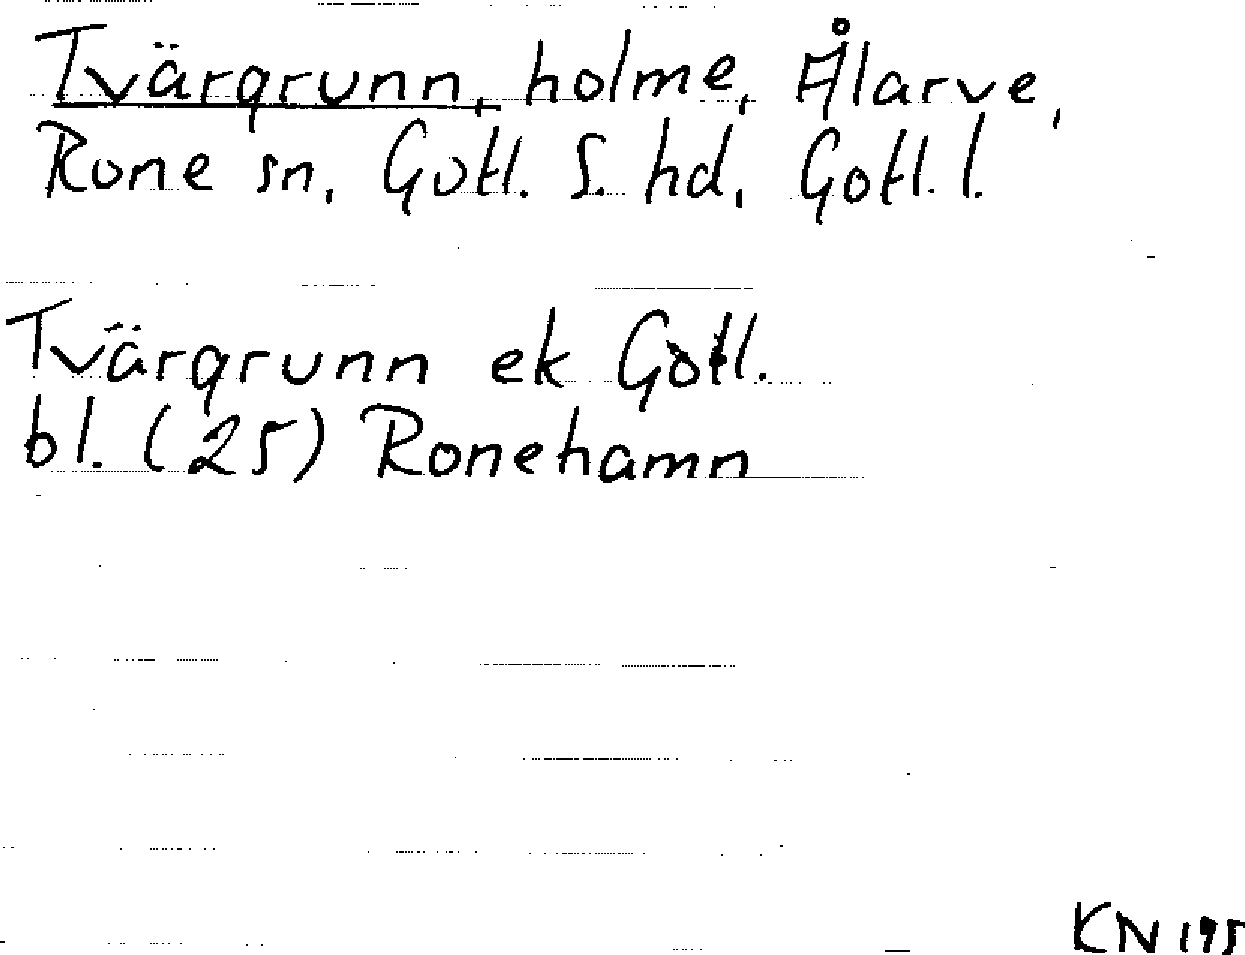 Tvärgrunn, holme, Ålarve,
Rone sn, Gotl. S. hd, Gotl. l.
Tvärgrunn ek Gotl.
bl. (25) Ronehamn
KN 195